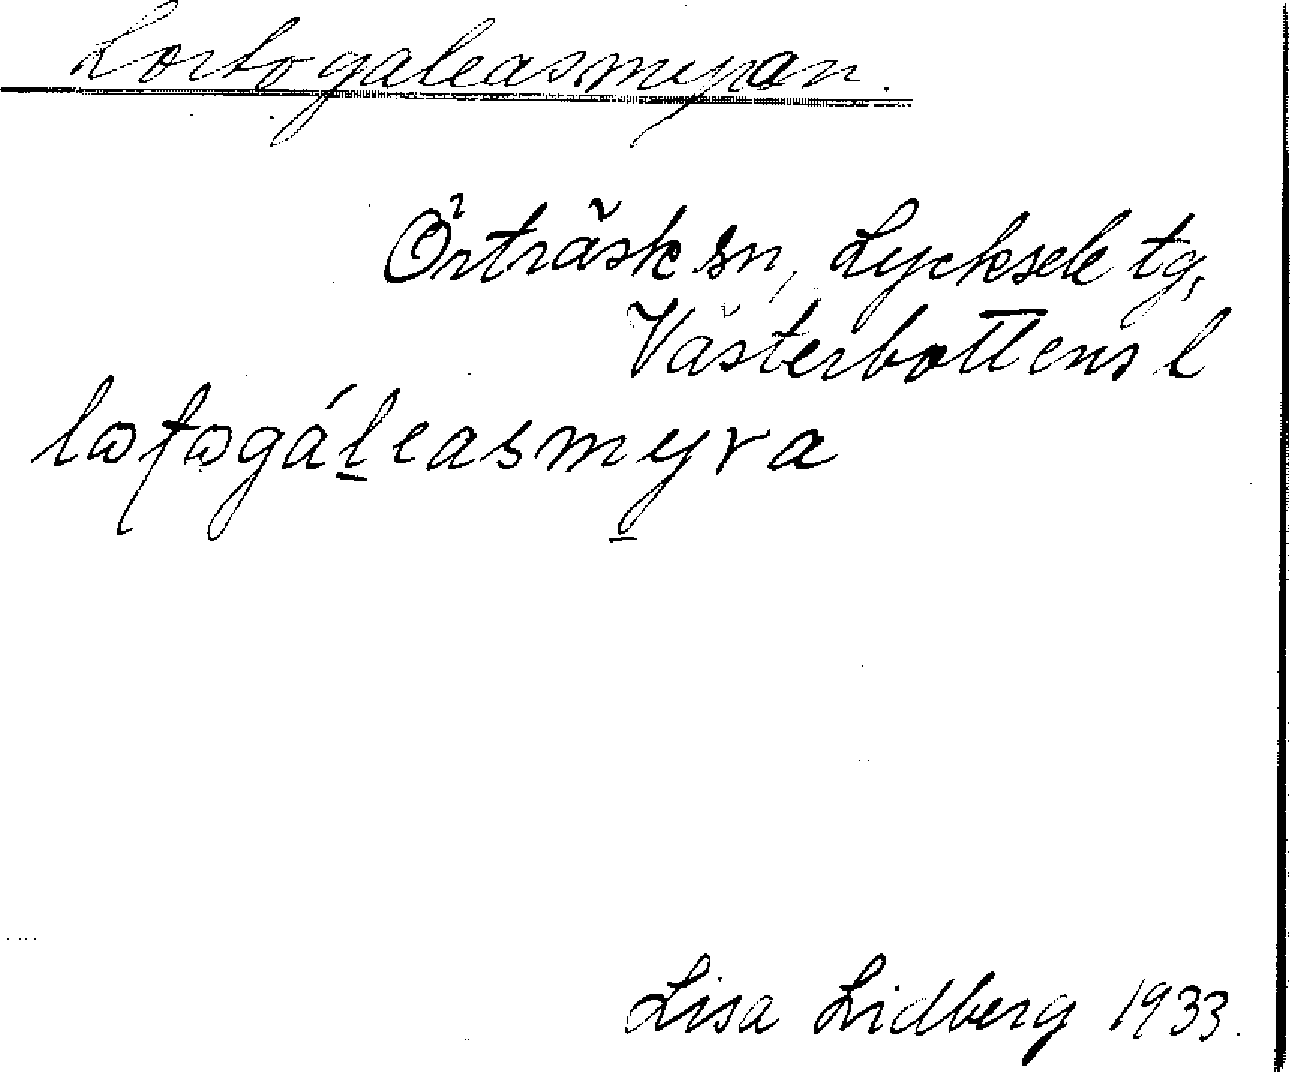 Lortogaleasmyran.
Örträsk sn, Lycksele tg,
Västerbottens l
lotogáleasmyra
Lisa Lidberg 1933.